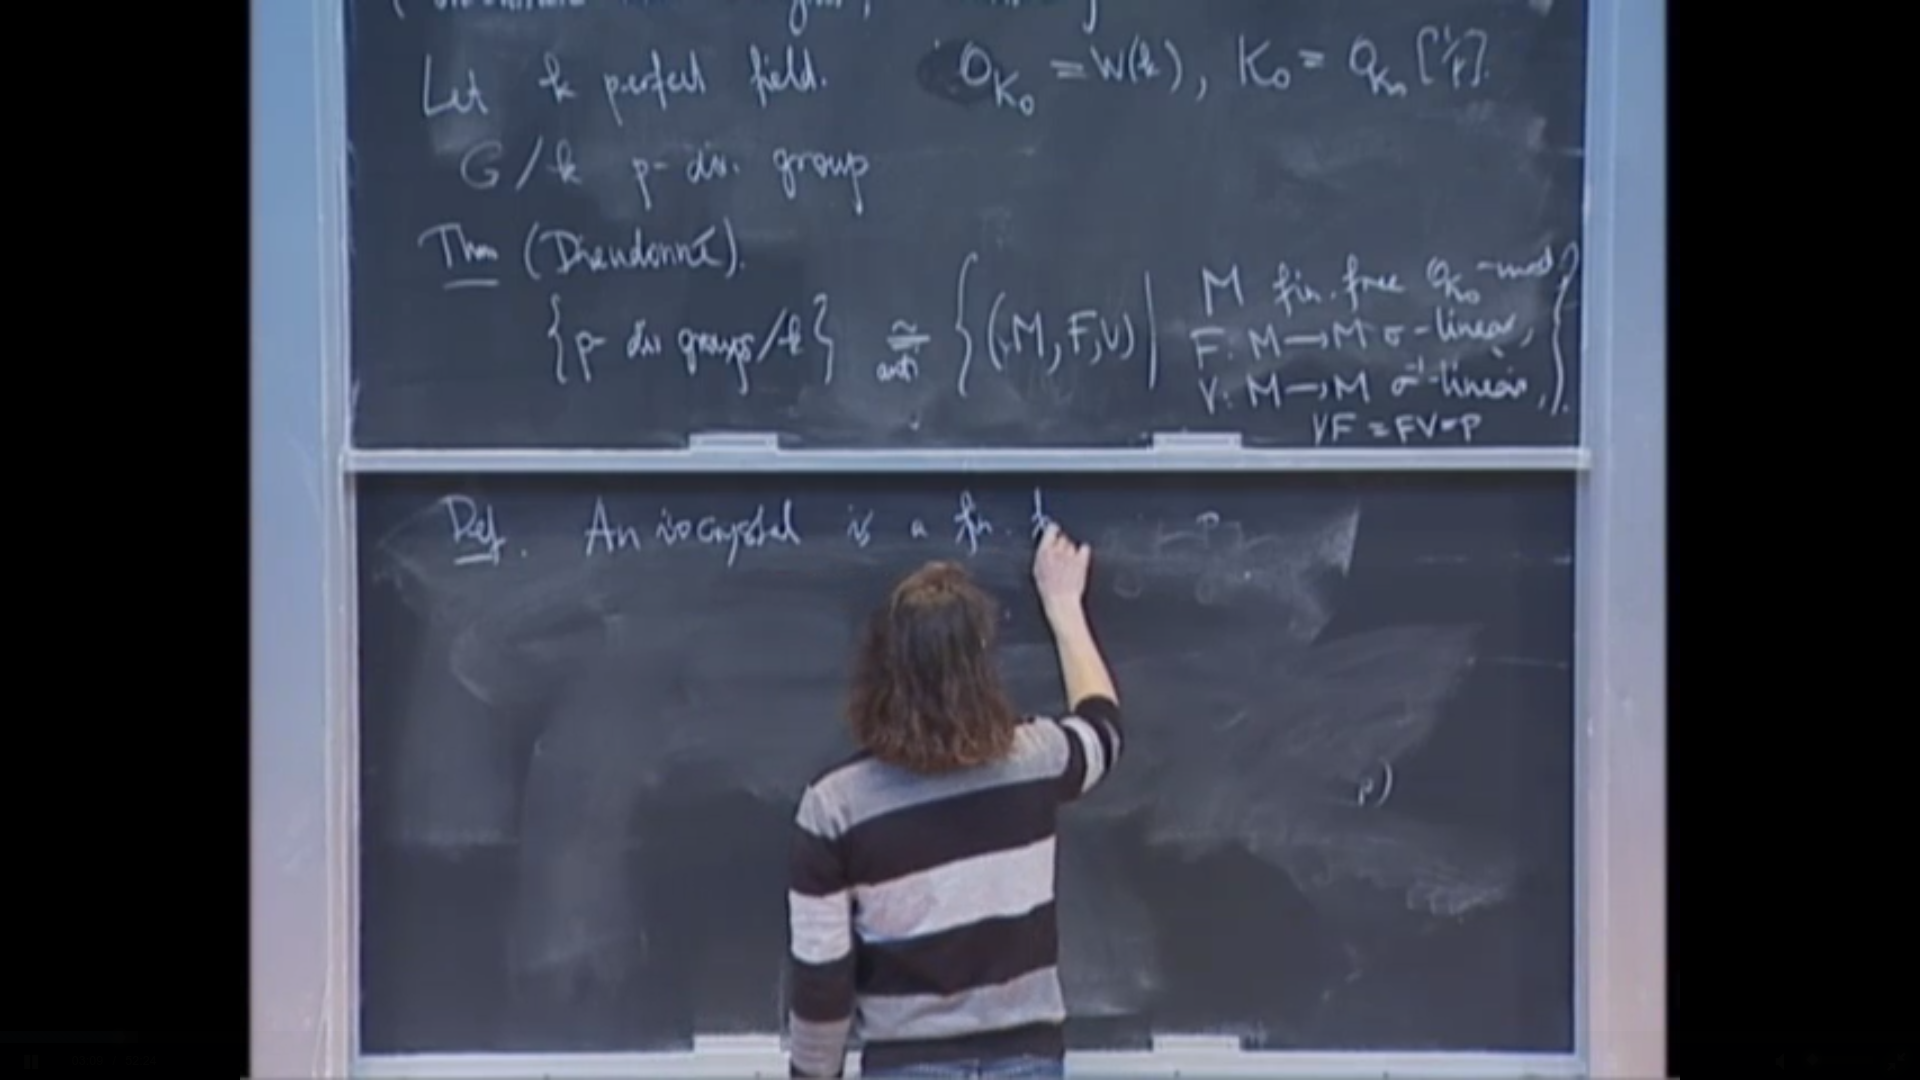 Let k perfect field. O_{K_0} = W(k), K_0 = O_{K_0}[1/p].
G/k p-div. group
Thm (Dieudonné).
{p-div groups/k} ≅ anti {(M,F,V) | M fin. free O_{K_0}-mod
F: M→M σ-linear,
V: M→M σ^{-1}-linear,}.
VF = FV = p
Def. An isocrystal is a fin.
p)